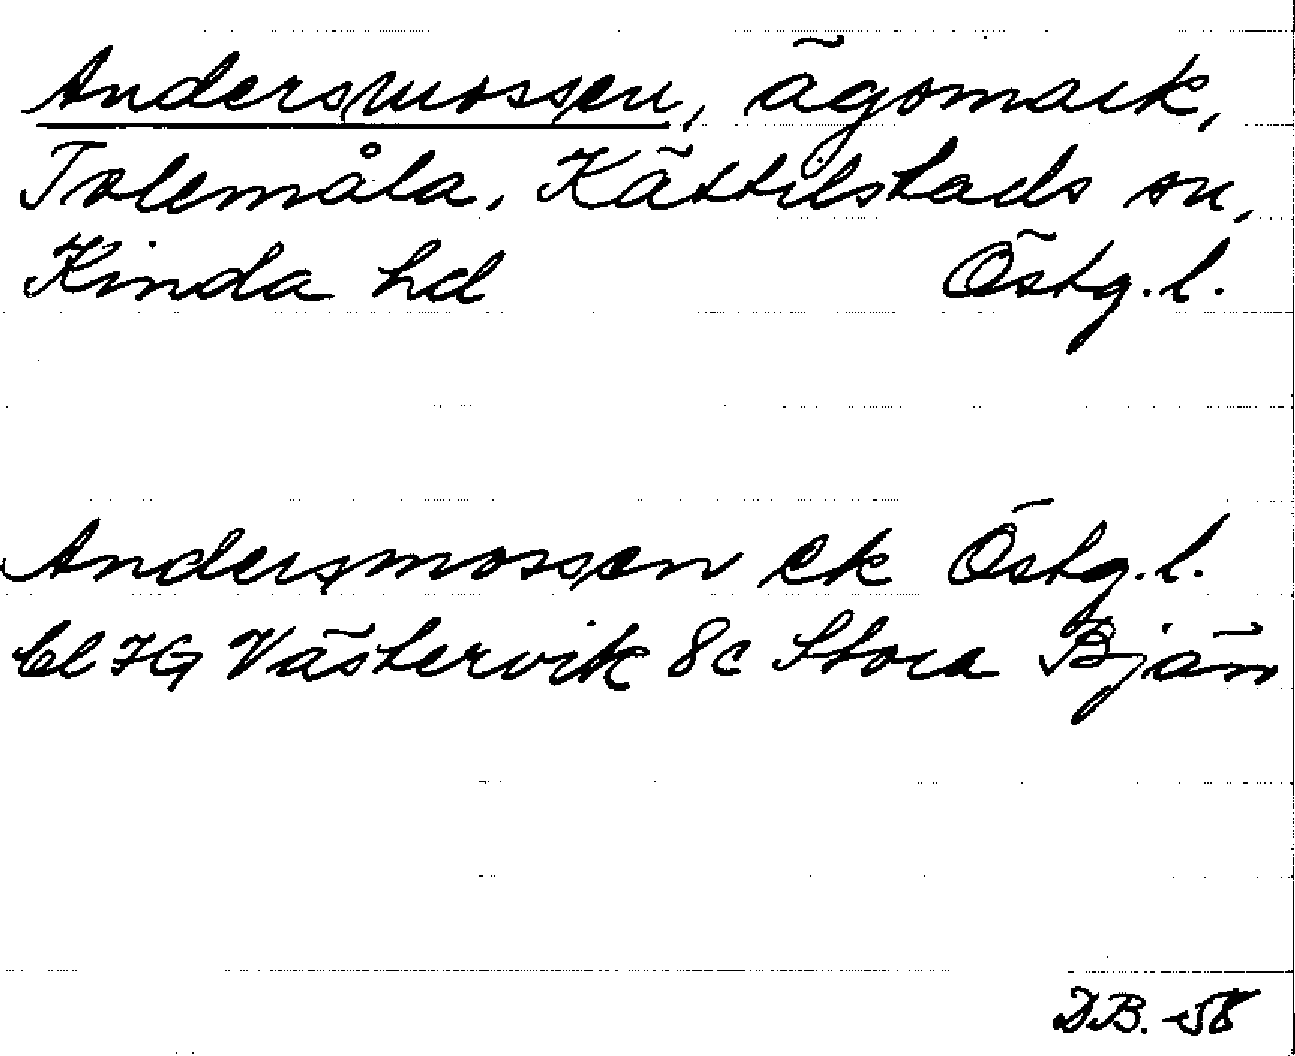 Andersmossen, ägomark,
Tolemåla, Kättilstads sn,
Kinda hd Östg. l.
Andersmossen ek Östg. l.
bl 7G Västervik 8c Stora Bjän
D.B. -58